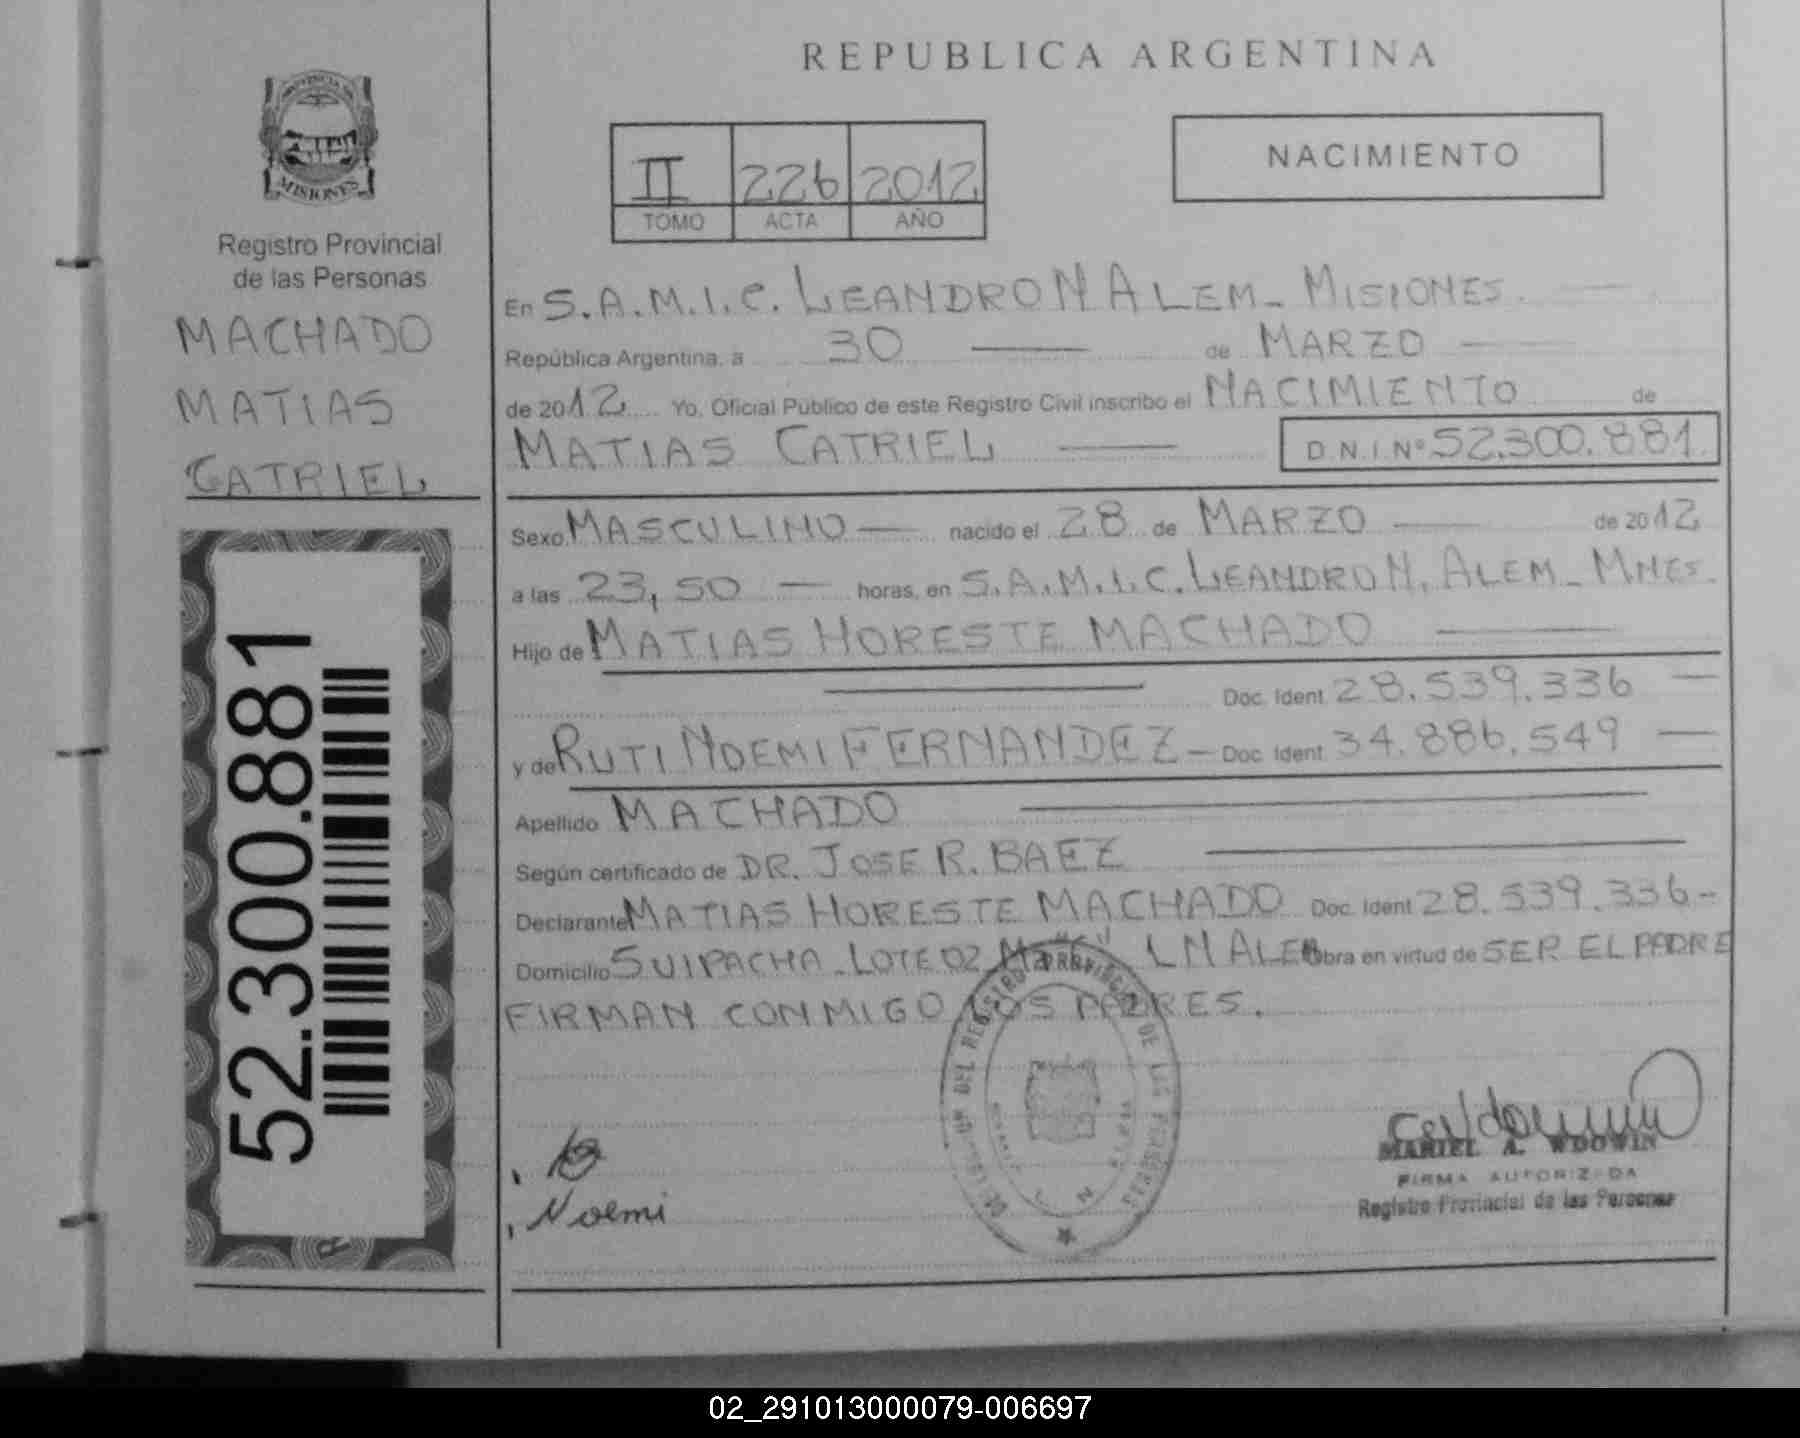 REPUBLICA ARGENTINA
PROVINCIA DE
MISIONES
Registro Provincial
de las Personas
MACHADO
MATIAS
CATRIEL
52.300.881
II 226 2012
TOMO ACTA AÑO
NACIMIENTO
En S.A.M.I.C. LEANDRO N ALEM - MISIONES.
República Argentina, a 30 de MARZO
de 2012 Yo, Oficial Público de este Registro Civil inscribo el NACIMIENTO de
MATIAS CATRIEL D.N.I. Nº 52.300.881.
Sexo MASCULINO nacido el 28 de MARZO de 2012
a las 23,50 horas, en S.A.M.I.C. LEANDRO N. ALEM - MNES.
Hijo de MATIAS HORESTE MACHADO
Doc. Ident. 28.539.336
y de RUTI NOEMI FERNANDEZ - Doc. Ident. 34.886.549
Apellido MACHADO
Según certificado de DR. JOSE R. BAEZ
Declarante MATIAS HORESTE MACHADO Doc. Ident. 28.539.336-
Domicilio SUIPACHA - LOTE 02 L N ALEM Obra en virtud de SER EL PADRE
FIRMAN CONMIGO LOS PADRES.
DEL REGISTRO PROVINCIAL DE LAS PERSONAS
Noemi
MARIEL A. WDOWIN
FIRMA AUTORIZADA
Registro Provincial de las Personas
02_291013000079-006697